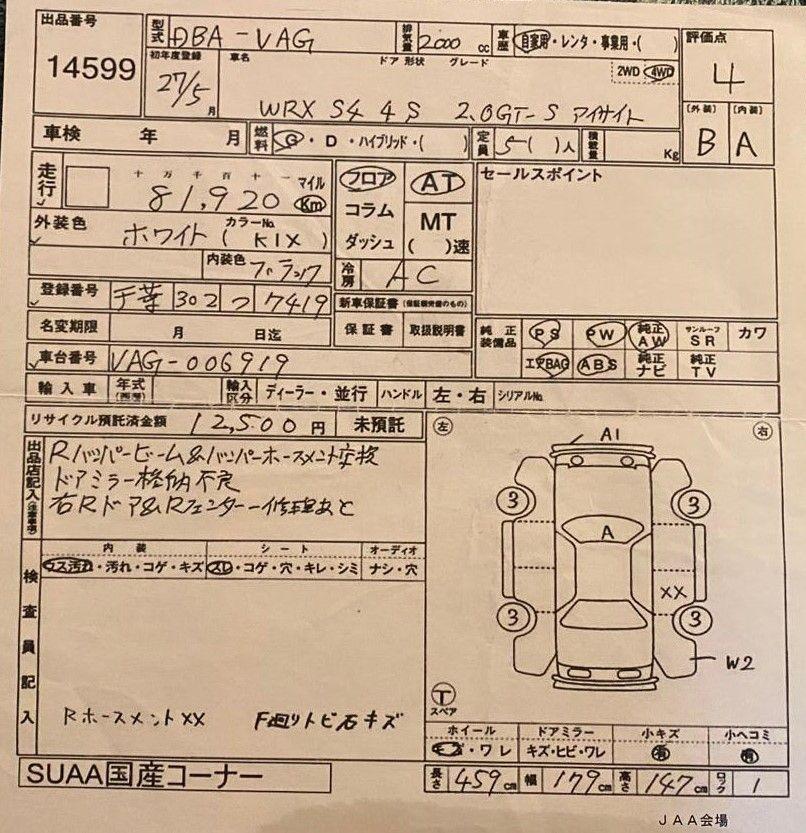 出品番号 型式 DBA-VAG 排気量 2000 cc 車歴 自家用・レンタ・事業用・( ) 評価点
14599 初年度登録 車名 ドア 形状 グレード 2WD 4WD 4
27/5 月 WRX S4 4S 2.0GT-S アイサイト [外装] [内装]
車検 年 月 燃料 G・D・ハイブリッド・( ) 定員 5( )人 積載量 Kg B A
走行 十万千百十一 マイル フロア AT セールスポイント
81,920 Km
コラム MT
外装色 カラーNo.
ホワイト ( K1X ) ダッシュ ( )速
内装色 ブラック 冷房 AC
登録番号 千葉 302 つ 7419 新車保証書 (保証期間残のもの)
名変期限 月 日迄 保証書 取扱説明書 純正装備品 PS PW 純正AW サンルーフ SR カワ
車台番号 VAG-006919 エアBAG ABS 純正ナビ 純正TV
輸入車 年式 (西暦) 輸入区分 ディーラー・並行 ハンドル 左・右 シリアルNo.
リサイクル預託済金額 12,500 円 未預託
出品店記入(注意事項) Rバンパービーム&バンパーホースメント交換
ドアミラー格納不良
右Rドア&Rフェンダー修理あと
内装 シート オーディオ
ウス汚れ・汚れ・コゲ・キズ スレ・コゲ・穴・キレ・シミ ナシ・穴
検査員記入
RホースメントXX F廻りトビ石キズ
左 右
A1
3 3
A
XX
3 3
W2
T
スペア
ホイール ドアミラー 小キズ 小ヘコミ
キズ・ワレ キズ・ヒビ・ワレ 有 有
SUAA国産コーナー 長さ 459 cm 幅 179 cm 高さ 147 cm ロック 1
JAA会場